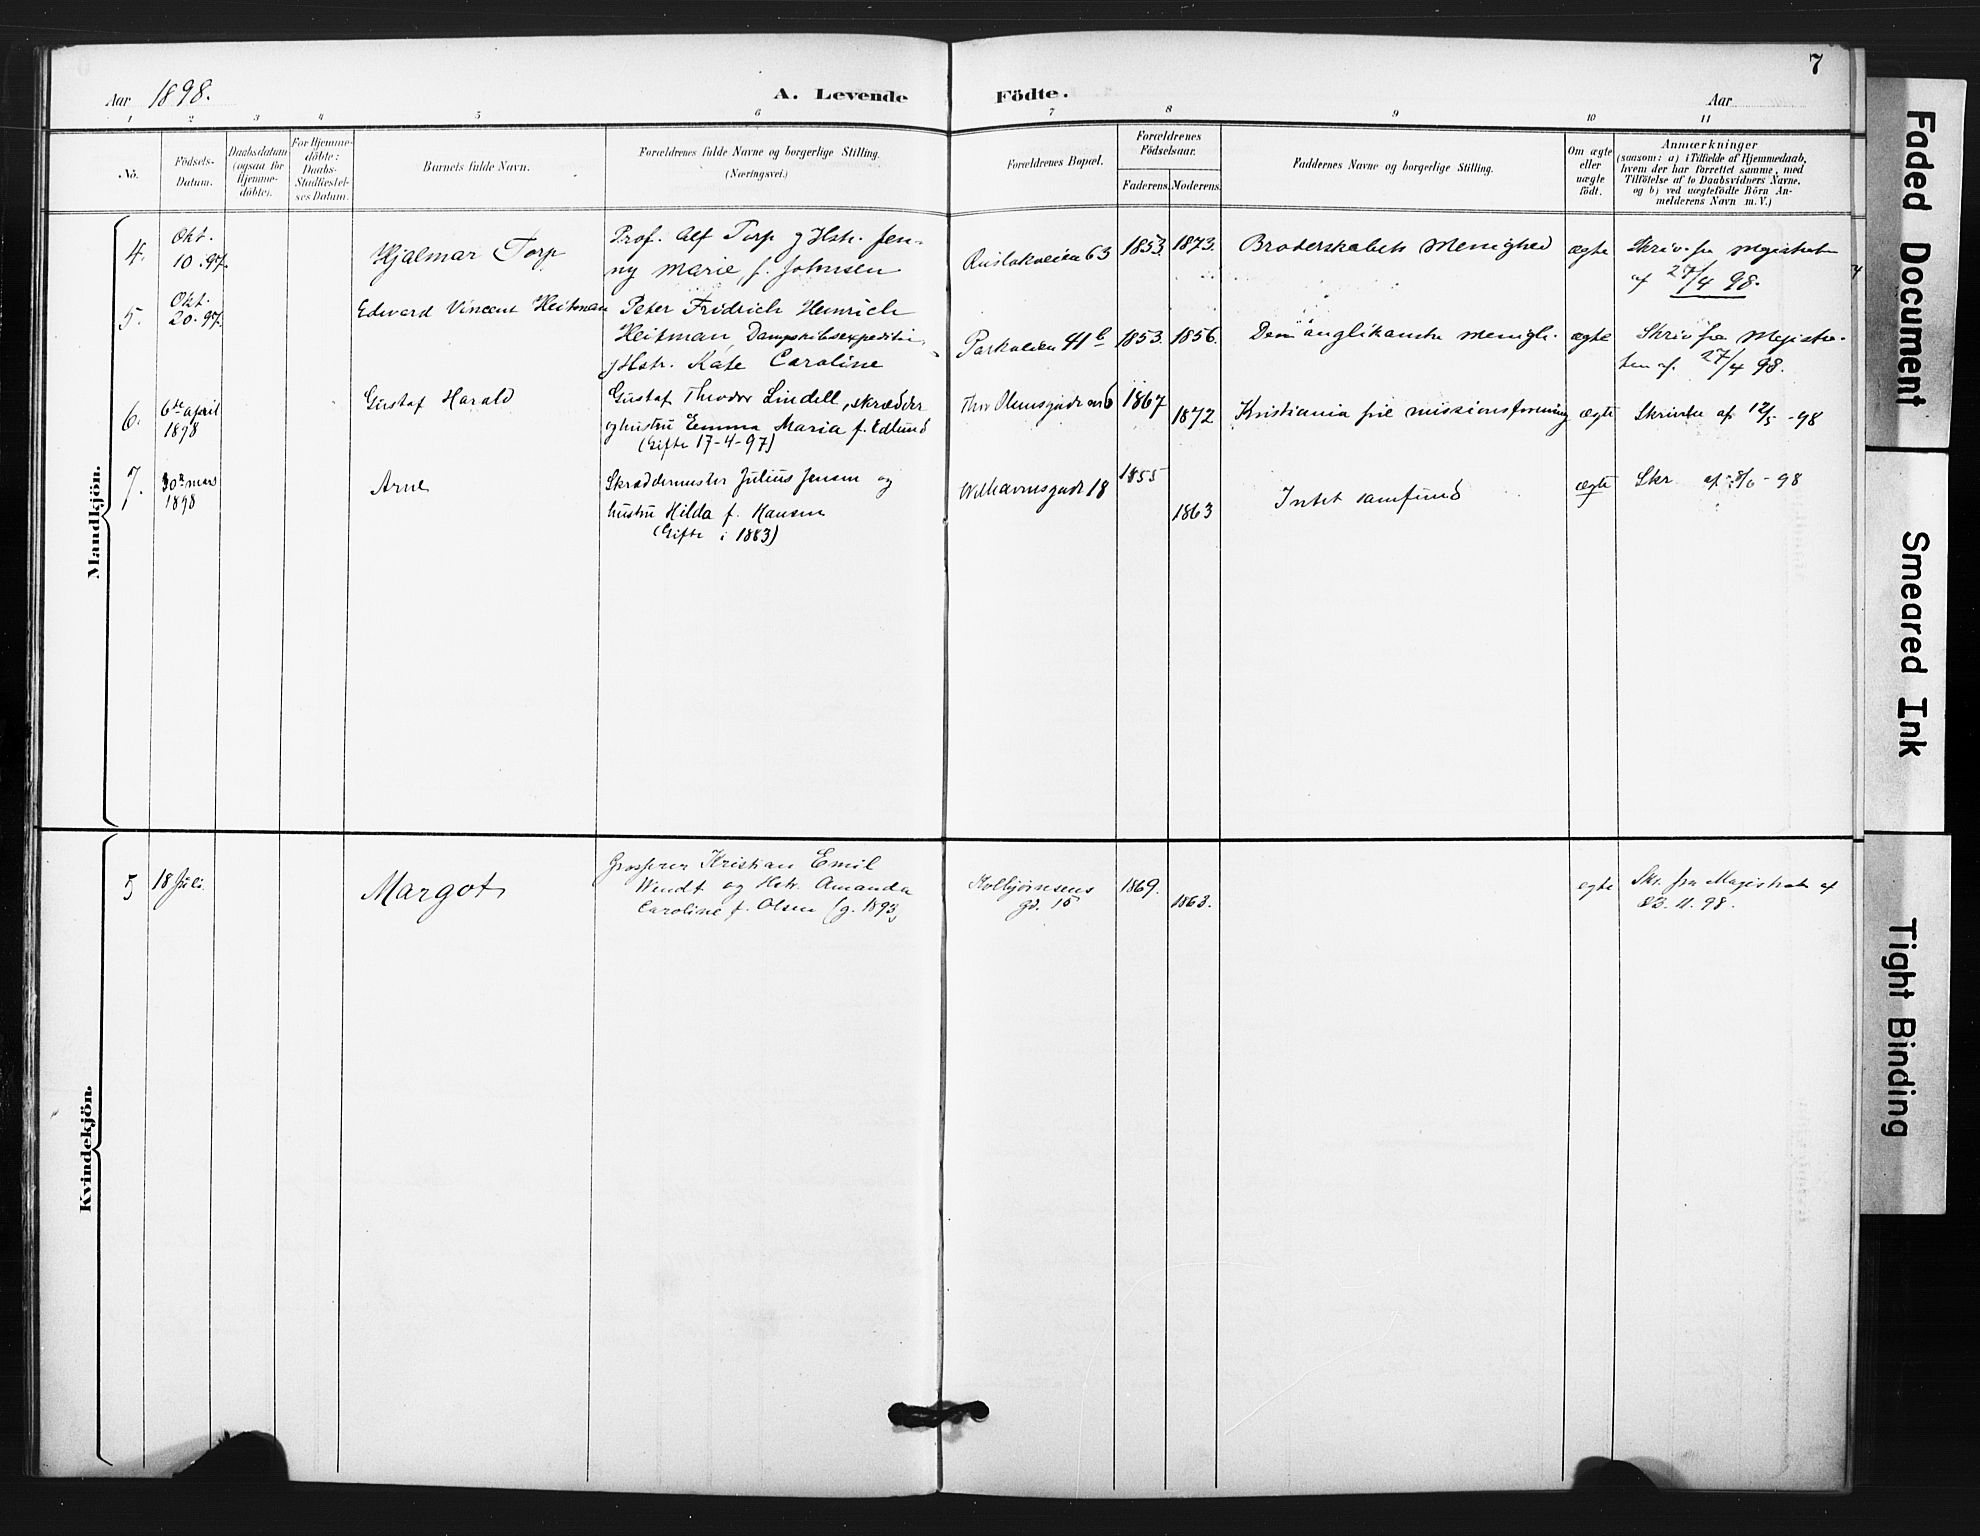 7
Aar 1898.
A. Levende Födte.
Aar
1 2 3 4 5 6 7 8 9 10 11
No.
Födsels-
Datum.
Daabsdatum
(ogsaa for
Hjemme-
döbte).
For Hjemme-
döbte:
Daabs-
Stadfæstel-
ses Datum.
Barnets fulde Navn.
Forældrenes fulde Navne og borgerlige Stilling.
(Næringsvei.)
Forældrenes Bopæl.
Forældrenes
Födselsaar.
Faderens. Moderens.
Faddernes Navne og borgerlige Stilling.
Om ægte
eller
uægte
födt.
Anmærkninger
(saasom: a) i Tilfælde af Hjemmedaab,
hvem der har forrettet samme, med
Tilföielse af to Daabsvidners Navne,
og b) ved uægtefödte Börn An-
melderens Navn m. V.)
Mandkjön.
4.
Okt.
10.97.
Hjalmar Torp
Prof. Alf Torp g Hstr. Jen-
ny Marie f. Johnsen
63
1853. 1873.
Broderskabets Menighed
ægte
Skriv. fra Magistraten
af 27/4 98.
5.
Okt.
20.97.
Edward Vincent Heitman
Peter Fridrich Heinrich
Heitman, Dampskibsexpeditør
g Hstr. Kate Caroline
Parkveien 41 b
1853. 1856.
Den anglikanske menigh.
ægte
Skriv fra Magistra-
ten af. 27/4 98.
6.
6te april
1898
Gustaf Harald
Gustaf Theodor Lindell, skrædder
og hustru Emma Maria f. Edlund
(Gifte 17-4-97)
Thv Olsensgade nr 6
1867
1872
Kristiania frie missionsforening
ægte
Skrivelse af 12/5 -98
7.
30te mars
1898
Arne
Skræddermester Julius Jensen og
hustru Hilda f. Hansen
(Gifte i 1883)
Welhavensgade 18
1855
1863
Intet samfund
ægte
Skr. af 8/6 - 98
Kvindekjön.
5
18 Juli.
Margot
Grosserer Kristian Emil
Wendt og Hstr. Amanda
Caroline f. Olsen (g. 1893)
Kolbjørnsens
gd. 15
1869.
1863.
ægte
Skr. fra Magistraten af
23. 11. 98.
Faded Document
Smeared Ink
Tight Binding